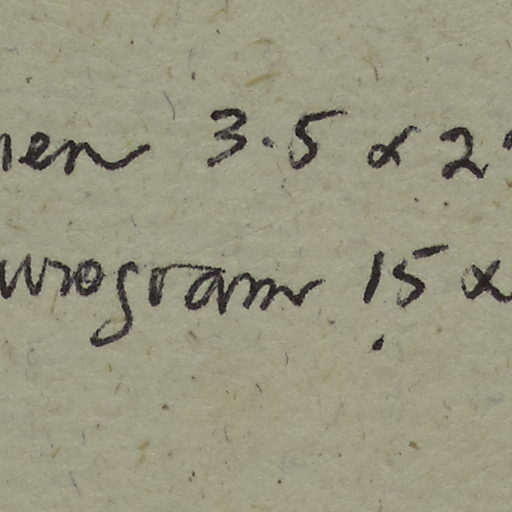 nen 3.5 x 2
urogram 15 x